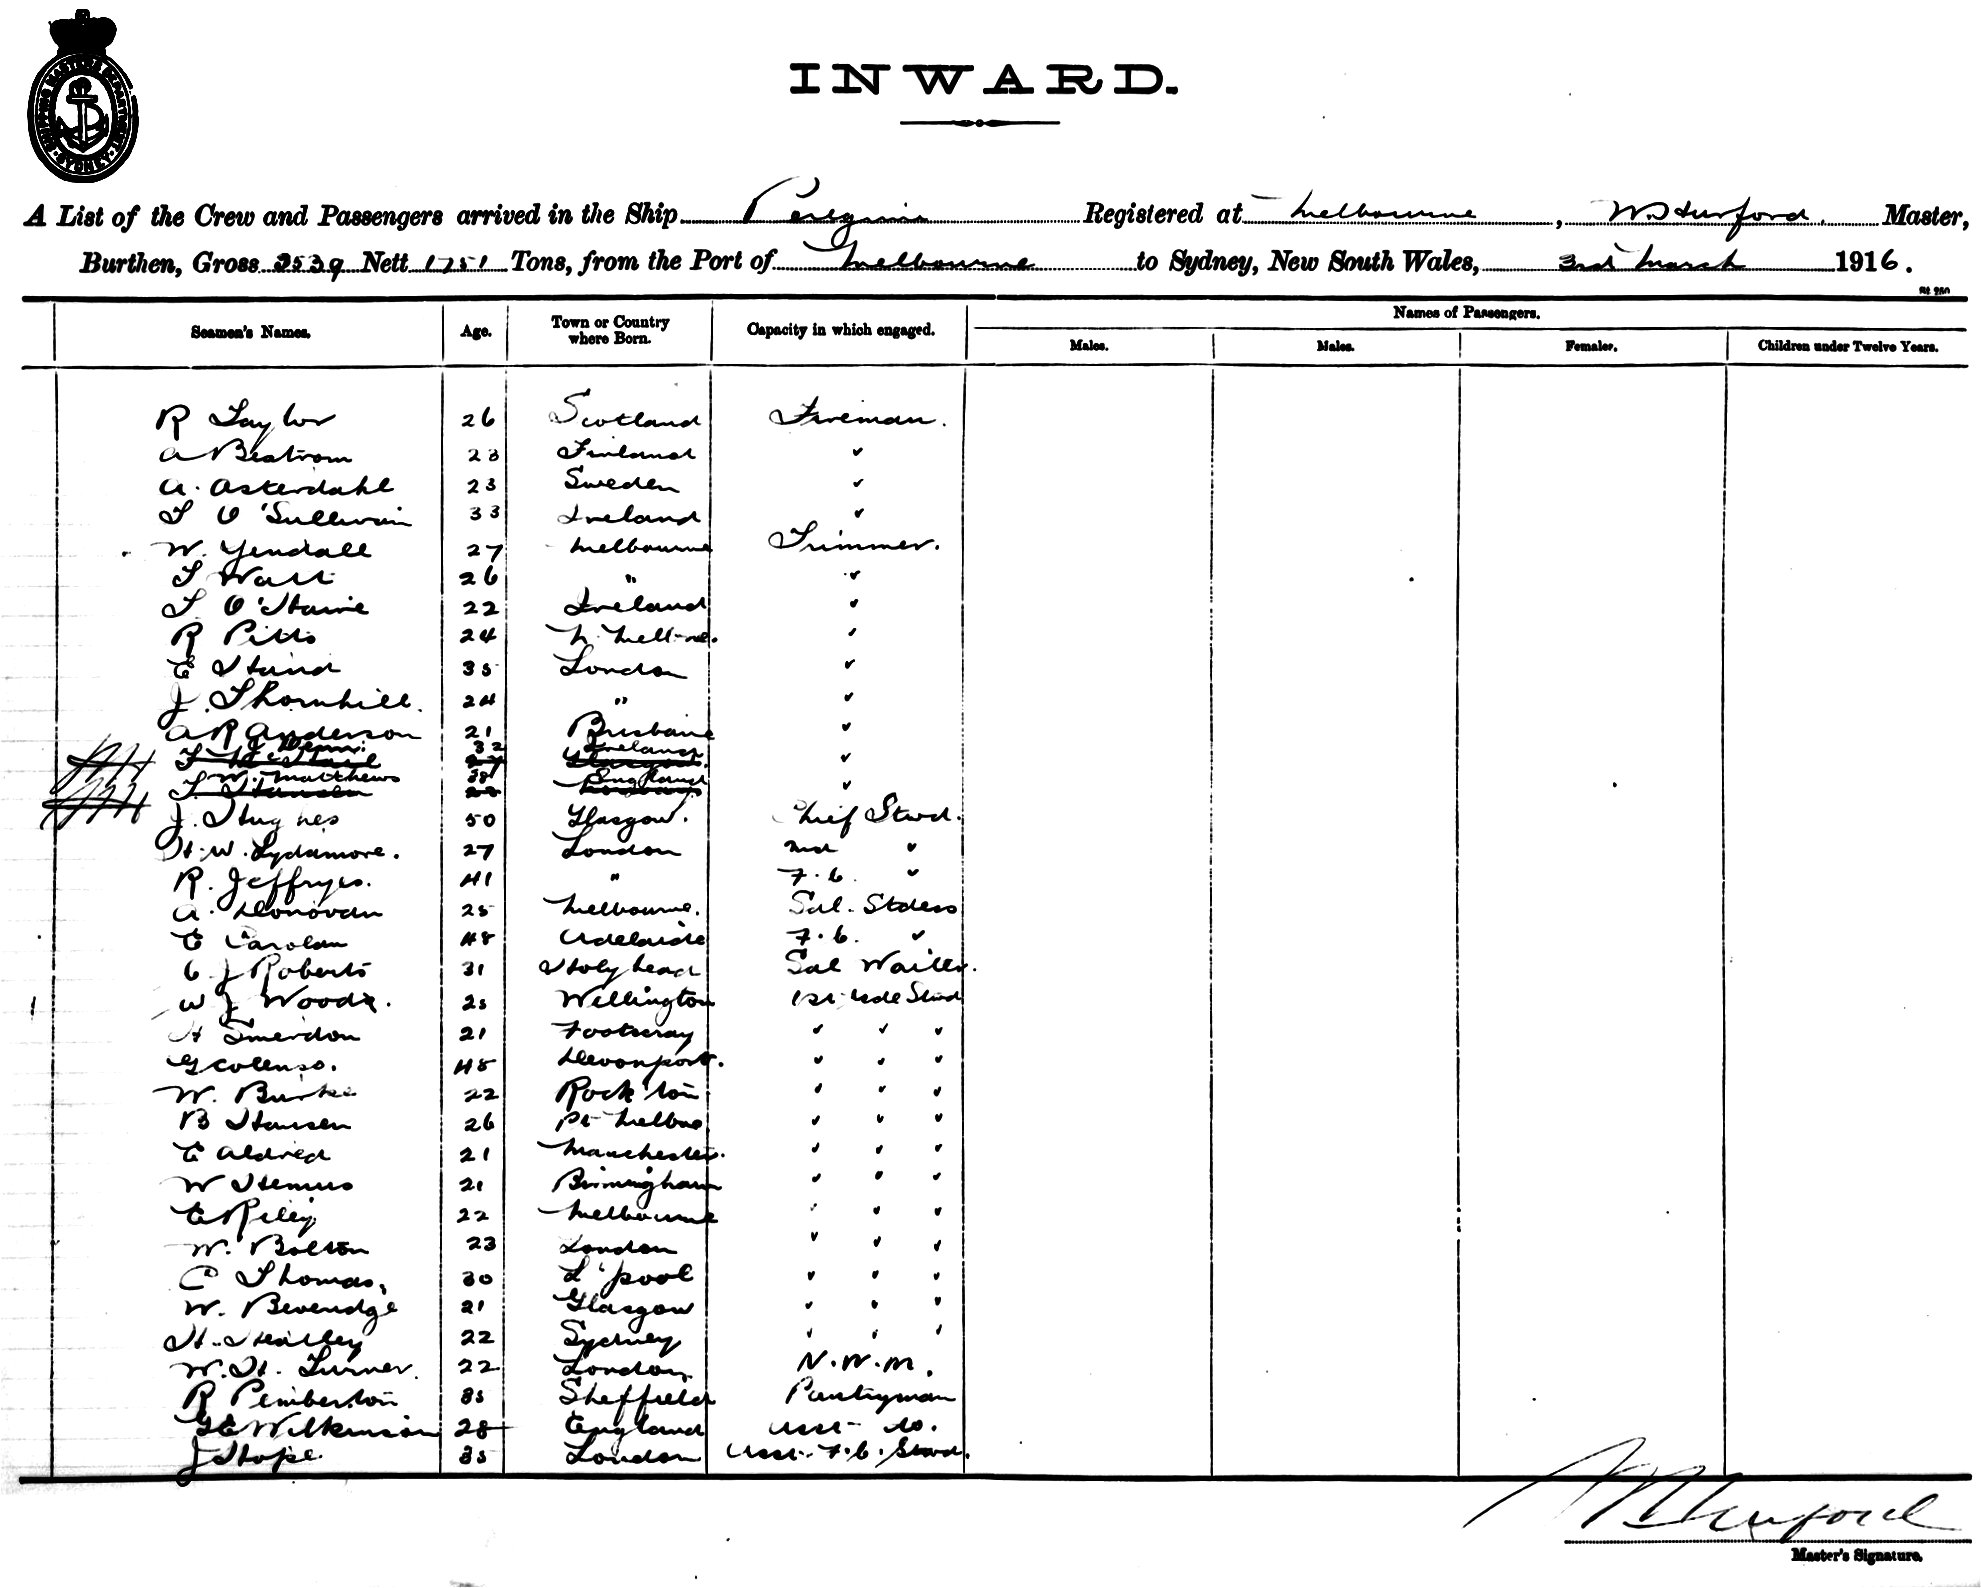 SHIPPING MASTERS DEPARTMENT SYDNEY
INWARD.
A List of the Crew and Passengers arrived in the Ship Peregrine Registered at Melbourne, W. Hurford. Master,
Burthen, Gross 2539 Nett 1751 Tons, from the Port of Melbourne to Sydney, New South Wales, 3rd March 1916.
Seamen's Names. Age. Town or Country where Born. Capacity in which engaged. Names of Passengers.
Males. Males. Females. Children under Twelve Years.
R Taylor 26 Scotland Fireman.
A Beatrom 23 Finland "
A. Asterdahl 23 Sweden "
T O'Sullivan 33 Ireland "
W. Yendall 27 Melbourne Trimmer.
T Watt 26 " "
T. O'Haire 22 Ireland "
R Pitts 24 N. Melb-ne. "
E Hand 35 London "
J. Thornhill. 24 " "
A R Anderson 21 Brisbane "
J 32 Ireland
T 27 Glasgow. "
W. Matthews 38 England
T. Hansen "
J. Hughes 50 Glasgow. Chief Stwd.
H. W. Lydamore. 27 London 2nd "
R. Jeffryes. 41 " F.C. "
A. Donovan 25 Melbourne. Sal. Stdess
E Carolan 48 Adelaide F.C. "
C. J Roberts 31 Holyhead Sal Waiter.
1 W J Woods. 25 Wellington 1st Sde Stwd
H Smerdon 21 Footscray " " "
G Colenso. 48 Devonport. " " "
W. Burke 22 Rock'ton " " "
B Hansen 26 Pt Melbne " " "
E Aldred 21 Manchester. " " "
W Hemus 21 Birmingham " " "
E Riley 22 Melbourne " " "
W. Bolton 23 London " " "
C Thomas, 30 L'pool " " "
W. Beveridge 21 Glasgow " " "
H. Heatley 22 Sydney " " "
W. H. Turner. 22 London N.W.M.
R Pemberton 35 Sheffield Pantryman
G E Wilkinson 28 England Asst do.
J Hope. 35 London Asst. F.C. Stwd.
W Hurford
Master's Signature.